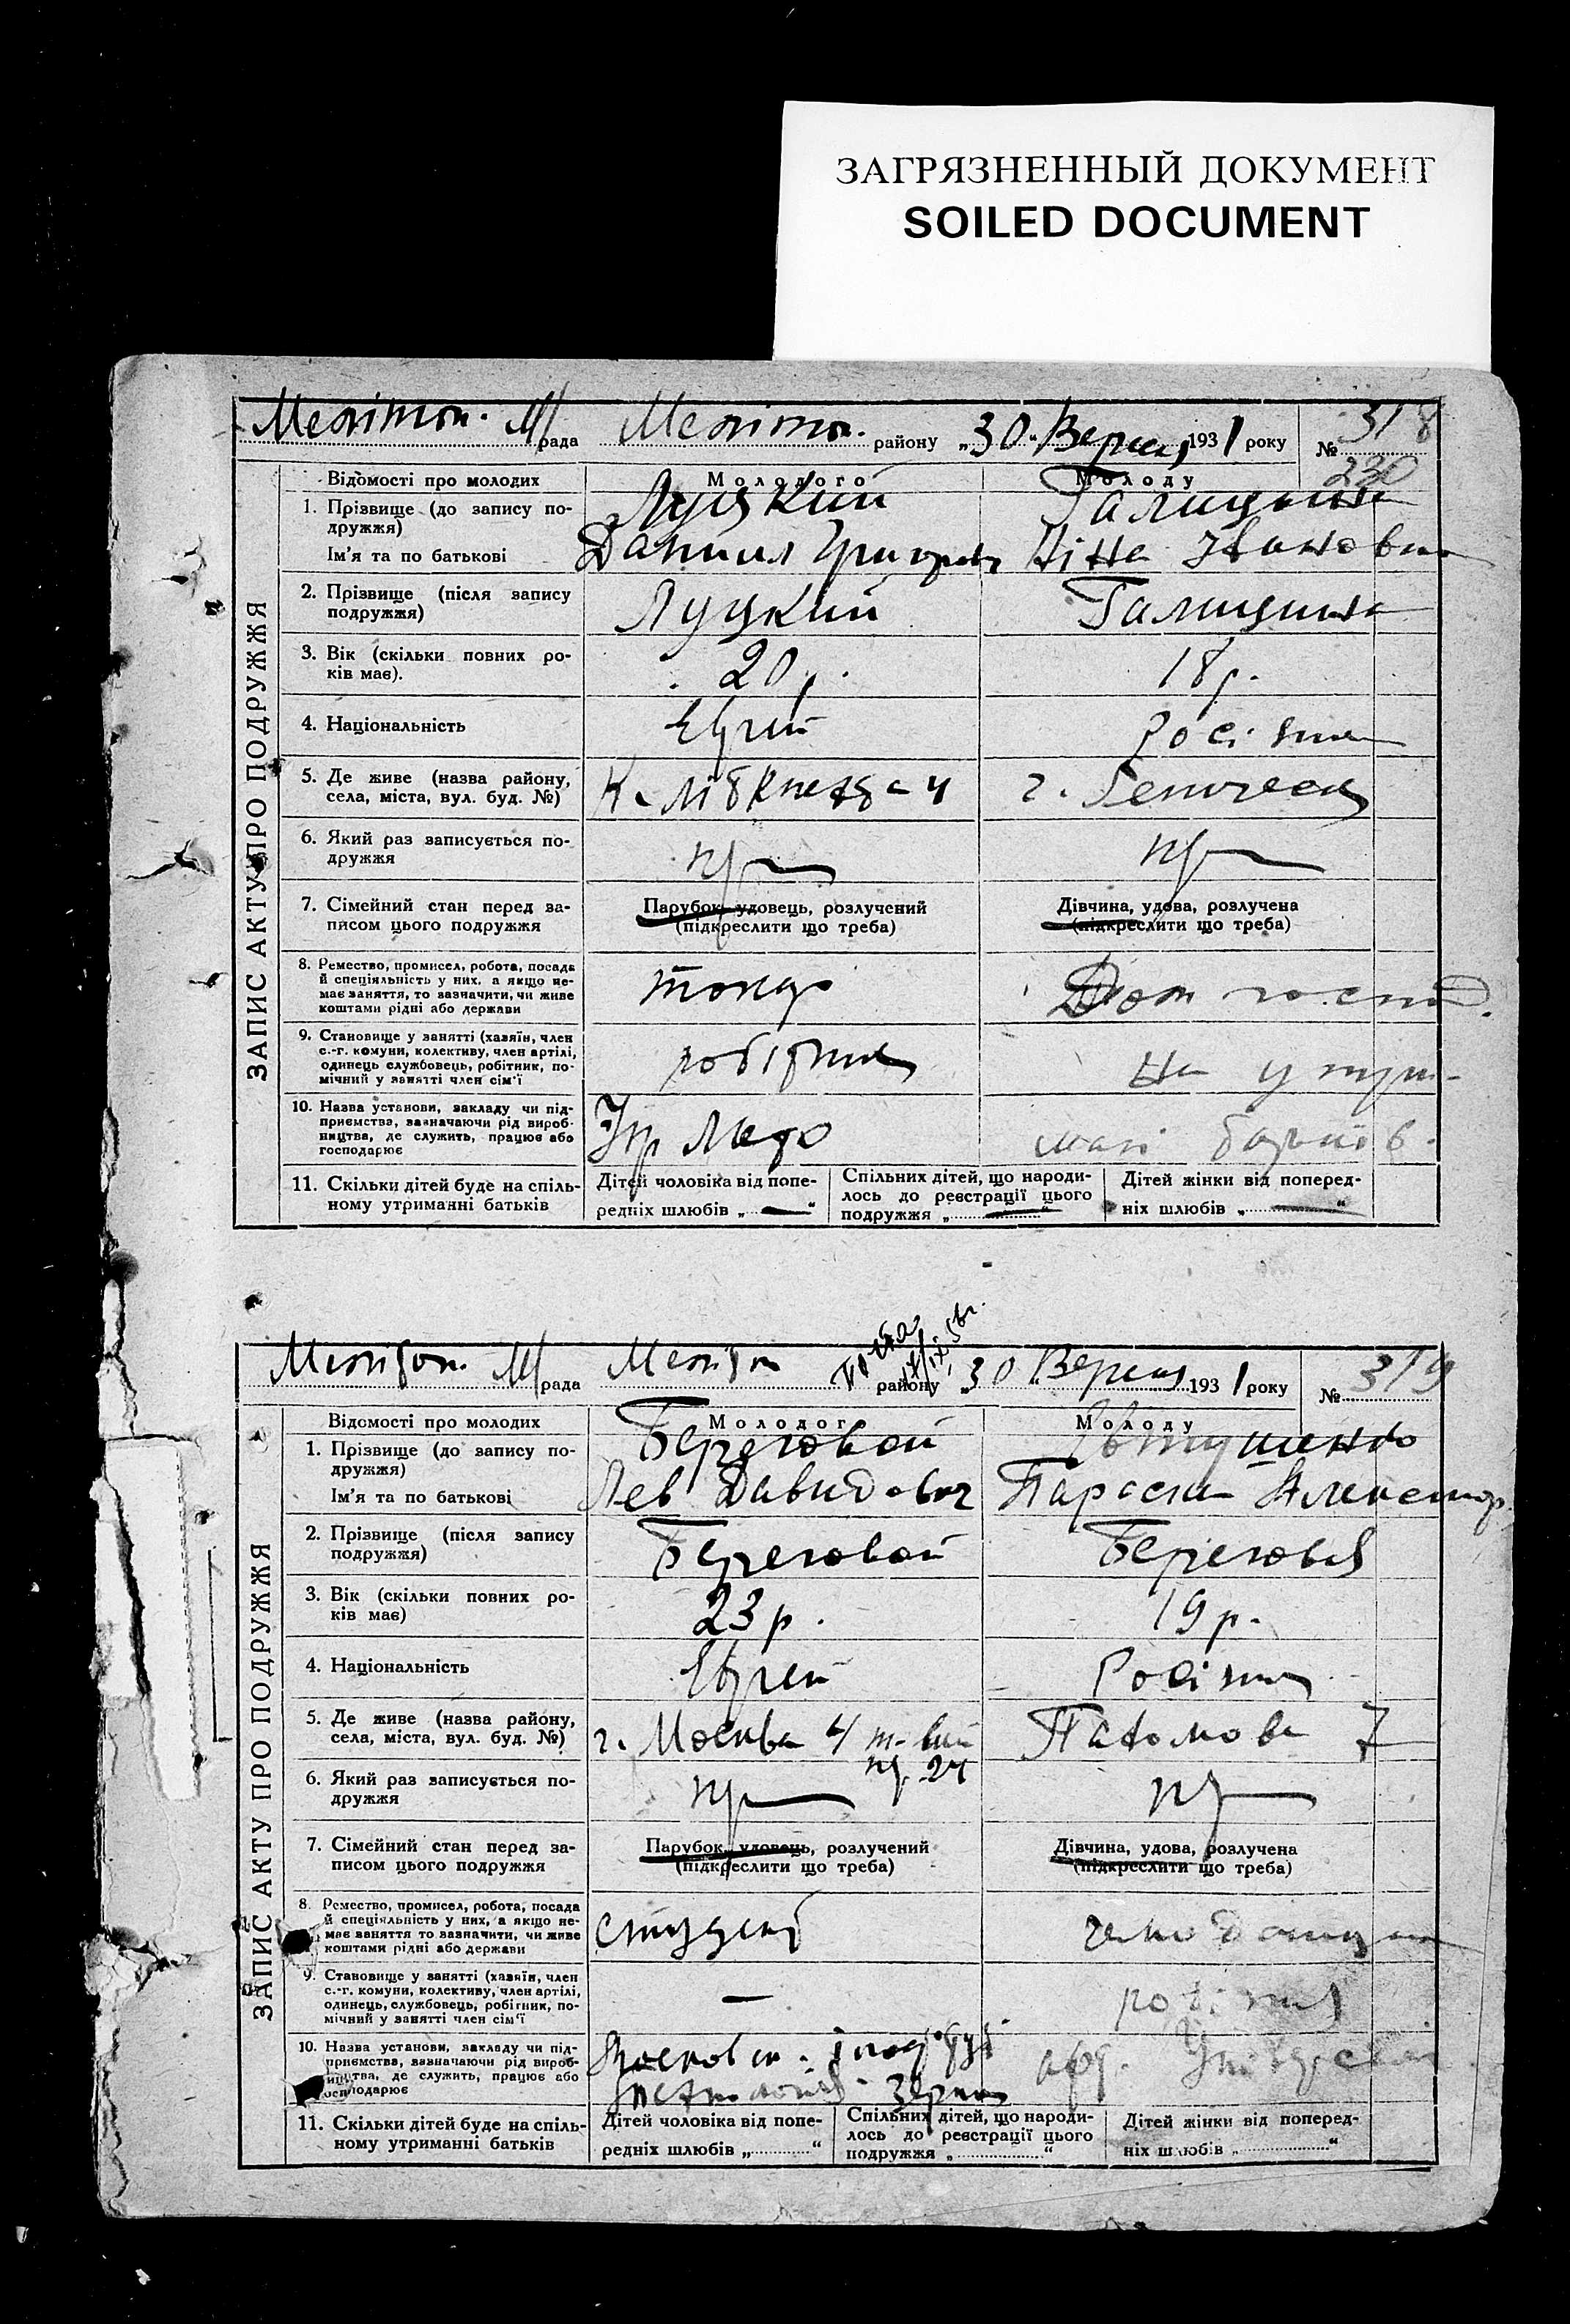 ЗАГРЯЗНЕННЫЙ ДОКУМЕНТ
SOILED DOCUMENT
Мелітоп. М/рада Мелітоп. району „30“ Вересня 1931 року № 318
230
ЗАПИС АКТУ ПРО ПОДРУЖЖЯ
Відомості про молодих Молодого Молоду
1. Прізвище (до запису по-
дружжя)
Луцкий Галицына
Ім'я та по батькові
Даниил Григоров Ніна Ивановна
2. Прізвище (після запису
подружжя)
Луцкий Галицина
3. Вік (скільки повних ро-
ків має).
20 р. 18 р.
4. Національність
Еврей Росіянка
5. Де живе (назва району,
села, міста, вул. буд. №)
К. Лібкнехта - 4 г. Геническ
6. Який раз записується по-
дружжя
пр пр
7. Сімейний стан перед за-
писом цього подружжя
Парубок, удовець, розлучений
(підкреслити що треба)
Дівчина, удова, розлучена
(підкреслити що треба)
8. Ремество, промисел, робота, посада
й спеціяльність у них, а якщо не-
має заняття, то зазначити, чи живе
коштами рідні або держави
токар Дом господ.
9. Становище у занятті (хазяїн, член
с.-г. комуни, колективу, член артілі,
одинець службовець, робітник, по-
мічний у занятті член сім'ї
робітник На утрим-
10. Назва установи, закладу чи під-
приємства, зазначаючи рід вироб-
ництва, де служить, працює або
господарює
батьків.
11. Скільки дітей буде на спіль-
ному утриманні батьків
Дітей чоловіка від попе-
редніх шлюбів „ — “
Спільних дітей, що народи-
лось до реєстрації цього
подружжя „ — “
Дітей жінки від поперед-
ніх шлюбів „ — “
Мелітоп. М/рада Мелітоп району „30“ Вересня 1931 року № 319
ЗАПИС АКТУ ПРО ПОДРУЖЖЯ
Відомості про молодих Молодого Молоду
1. Прізвище (до запису по-
дружжя)
Береговой Євтушенко
Ім'я та по батькові
Лев Давидович Параска Александр.
2. Прізвище (після запису
подружжя)
Береговой Береговая
3. Вік (скільки повних ро-
ків має)
23 р. 19 р.
4. Національність
Еврей Росіянка
5. Де живе (назва району,
села, міста, вул. буд. №)
г. Москва 4 т-кий Пахомова 7
пр. 24
6. Який раз записується по-
дружжя
пр пр
7. Сімейний стан перед за-
писом цього подружжя
Парубок, удовець, розлучений
(підкреслити що треба)
Дівчина, удова, розлучена
(підкреслити що треба)
8. Ремество, промисел, робота, посада
й спеціяльність у них, а якщо не-
має заняття то зазначити, чи живе
коштами рідні або держави
студент чемоданщица
9. Становище у занятті (хазяїн, член
с.-г. комуни, колективу, член артілі,
одинець, службовець, робітник, по-
мічний у занятті член сім'ї
—
10. Назва установи, закладу чи під-
приємства, зазначаючи рід вироб-
ництва, де служить, працює або
господарює
Московск. арт.
11. Скільки дітей буде на спіль-
ному утриманні батьків
Дітей чоловіка від попе-
редніх шлюбів „ “
Спільних дітей, що народи-
лось до реєстрації цього
подружжя „ “
Дітей жінки від поперед-
ніх шлюбів „ “